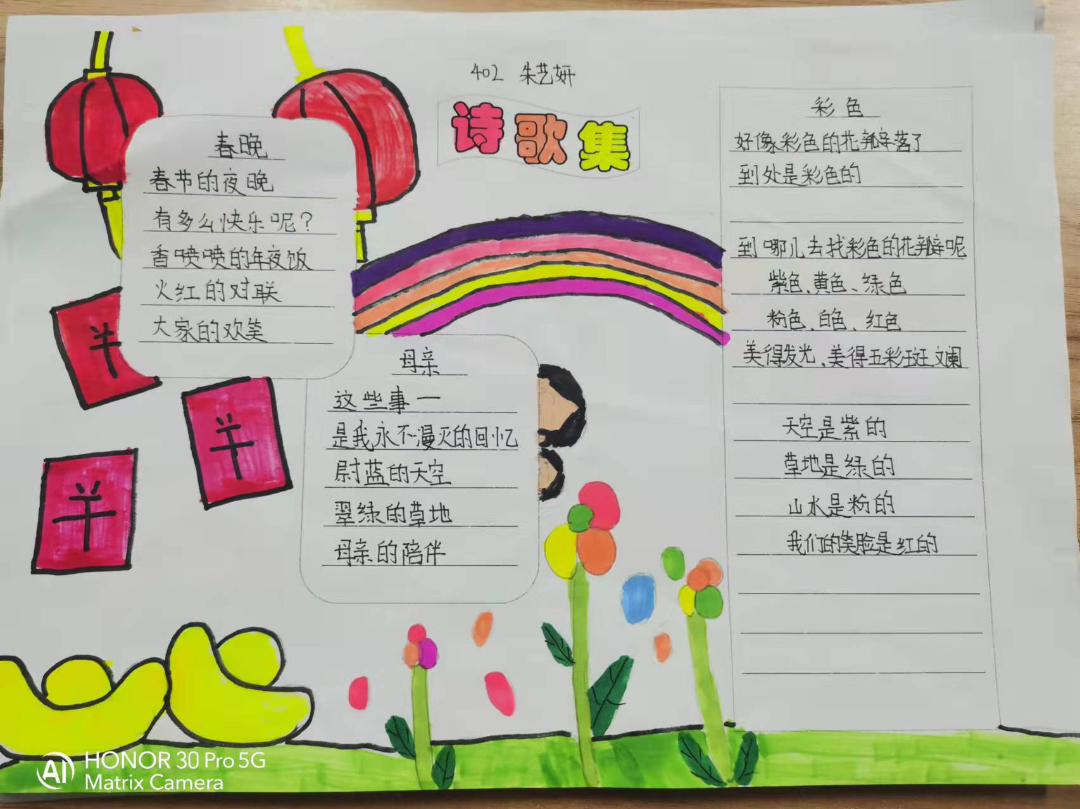 402 朱艺妍
诗歌集
春晚
春节的夜晚
有多么快乐呢？
香喷喷的年夜饭
火红的对联
大家的欢笑
羊
羊
羊
母亲
这些事一
是我永不漫灭的回忆
尉蓝的天空
翠绿的草地
母亲的陪伴
彩色
好像彩色的花瓣落了
到处是彩色的
到哪儿去找彩色的花瓣呢
紫色、黄色、绿色
粉色、白色、红色
美得发光、美得五彩斑斓
天空是紫的
草地是绿的
山水是粉的
我们的笑脸是红的
AI HONOR 30 Pro 5G
Matrix Camera